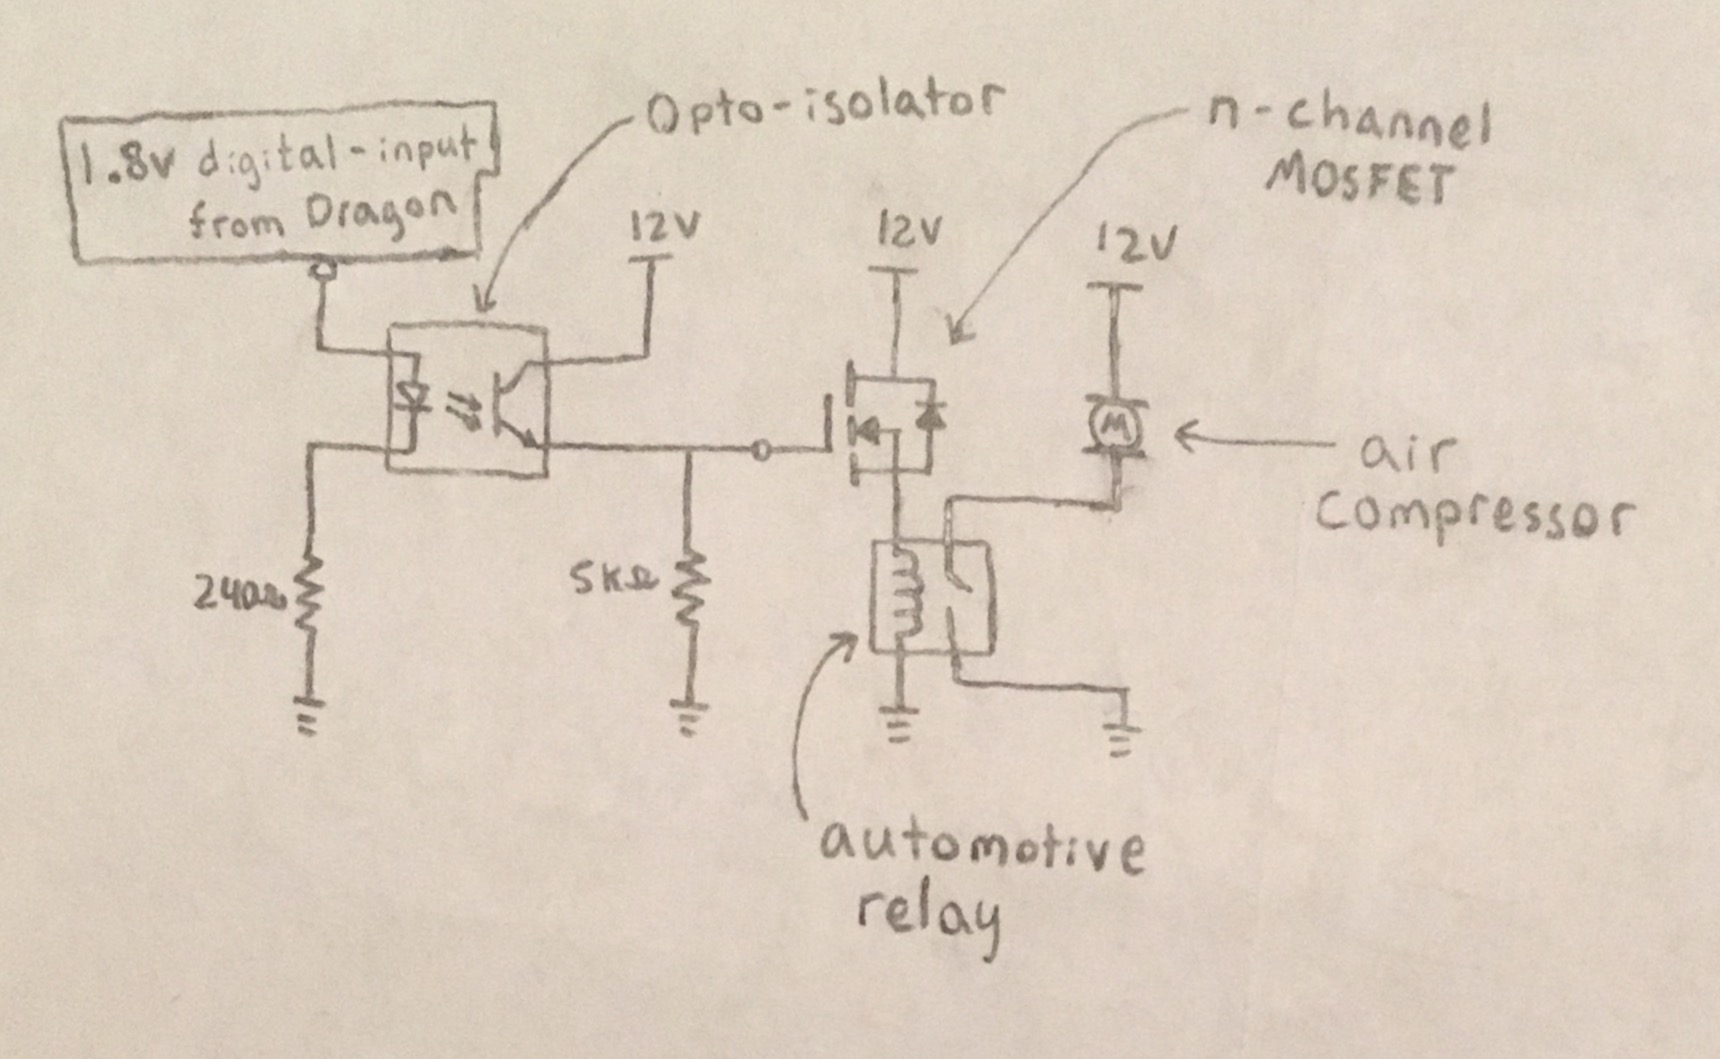 Opto-isolator
n-channel
MOSFET
1.8v digital-input
from Dragon
12V
12V
12V
M
air
compressor
240Ω
5KΩ
automotive
relay